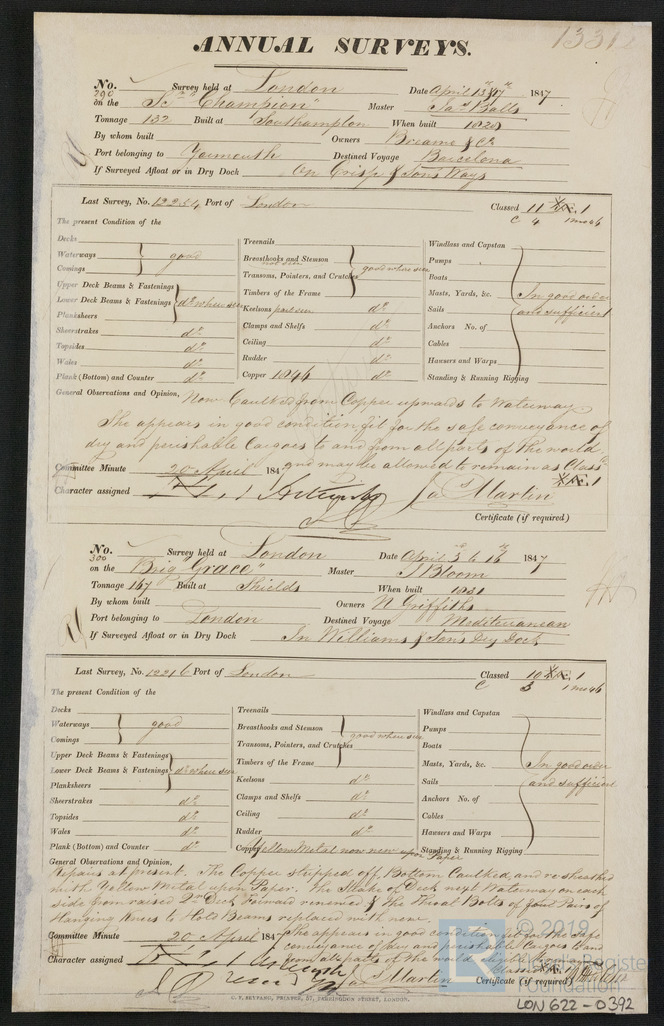 13312
ANNUAL SURVEYS.
No. 290 Survey held at London Date April 13 & 17th 1847
on the Sr "Champion" Master Jas Balls
Tonnage 132 Built at Southampton When built 1828
By whom built Owners Breame & Co
Port belonging to Yarmouth Destined Voyage Barcelona
If Surveyed Afloat or in Dry Dock On Crisp & Sons Ways
Last Survey, No. 12254 Port of London Classed 11 Æ. 1
C 4 1mo46
The present Condition of the
Decks
Waterways
Comings
good
Upper Deck Beams & Fastenings
Lower Deck Beams & Fastenings
Planksheers
do where seen
Sheerstrakes do
Topsides do
Wales do
Plank (Bottom) and Counter do
Treenails
Breasthooks and Stemson
not seen
Transoms, Pointers, and Crutches
Timbers of the Frame
good where seen
Keelsons part seen do
Clamps and Shelfs do
Ceiling do
Rudder do
Copper 1846 do
Windlass and Capstan
Pumps
Boats
Masts, Yards, &c.
Sails
Anchors No. of
Cables
Hausers and Warps
Standing & Running Rigging
In good order
and sufficient
General Observations and Opinion, Now Caulked from Copper upwards to Waterway
She appears in good condition fit for the safe conveyance of
dry and perishable Cargoes to and from all parts of the World
and may be allowed to remain as Class
Æ. 1
Committee Minute 20 April 184
Character assigned
Jas Martin
Certificate (if required)
No. 300 Survey held at London Date April 3 6 16th 1847
on the Brig "Grace" Master J Bloom
Tonnage 167 Built at Shields When built 1831
By whom built Owners N Griffiths
Port belonging to London Destined Voyage Mediterranean
If Surveyed Afloat or in Dry Dock In Williams & Sons Dry Dock
Last Survey, No. 12216 Port of London Classed 10 Æ. 1
C 3 1mo46
The present Condition of the
Decks
Waterways
Comings
good
Upper Deck Beams & Fastenings
Lower Deck Beams & Fastenings
Planksheers
do where seen
Sheerstrakes do
Topsides do
Wales do
Plank (Bottom) and Counter do
Treenails
Breasthooks and Stemson
Transoms, Pointers, and Crutches
Timbers of the Frame
good where seen
Keelsons do
Clamps and Shelfs do
Ceiling do
Rudder do
Copper Yellow Metal now new upon Paper
Windlass and Capstan
Pumps
Boats
Masts, Yards, &c.
Sails
Anchors No. of
Cables
Hausers and Warps
Standing & Running Rigging
In good order
and sufficient
General Observations and Opinion,
Repairs at present. The Copper stripped off, Bottom Caulked, and resheathed
with Yellow Metal upon Paper. The Strake of Deck next Waterway on each
side from raised Qr Deck Forward renewed & the Throat Bolts of four Pairs of
Hanging Knees to Hold Beams replaced with new.
She appears in good condition fit for the safe
conveyance of dry and perishable Cargoes to and
from all parts of the world
Æ. 1
Committee Minute 20 April 184
Character assigned
Jas Martin
Certificate (if required)
C. F. SEYFANG, PRINTER, 57, FARRINGDON STREET, LONDON.
© 2019
Lloyd's Register
Foundation
LON 622-0392